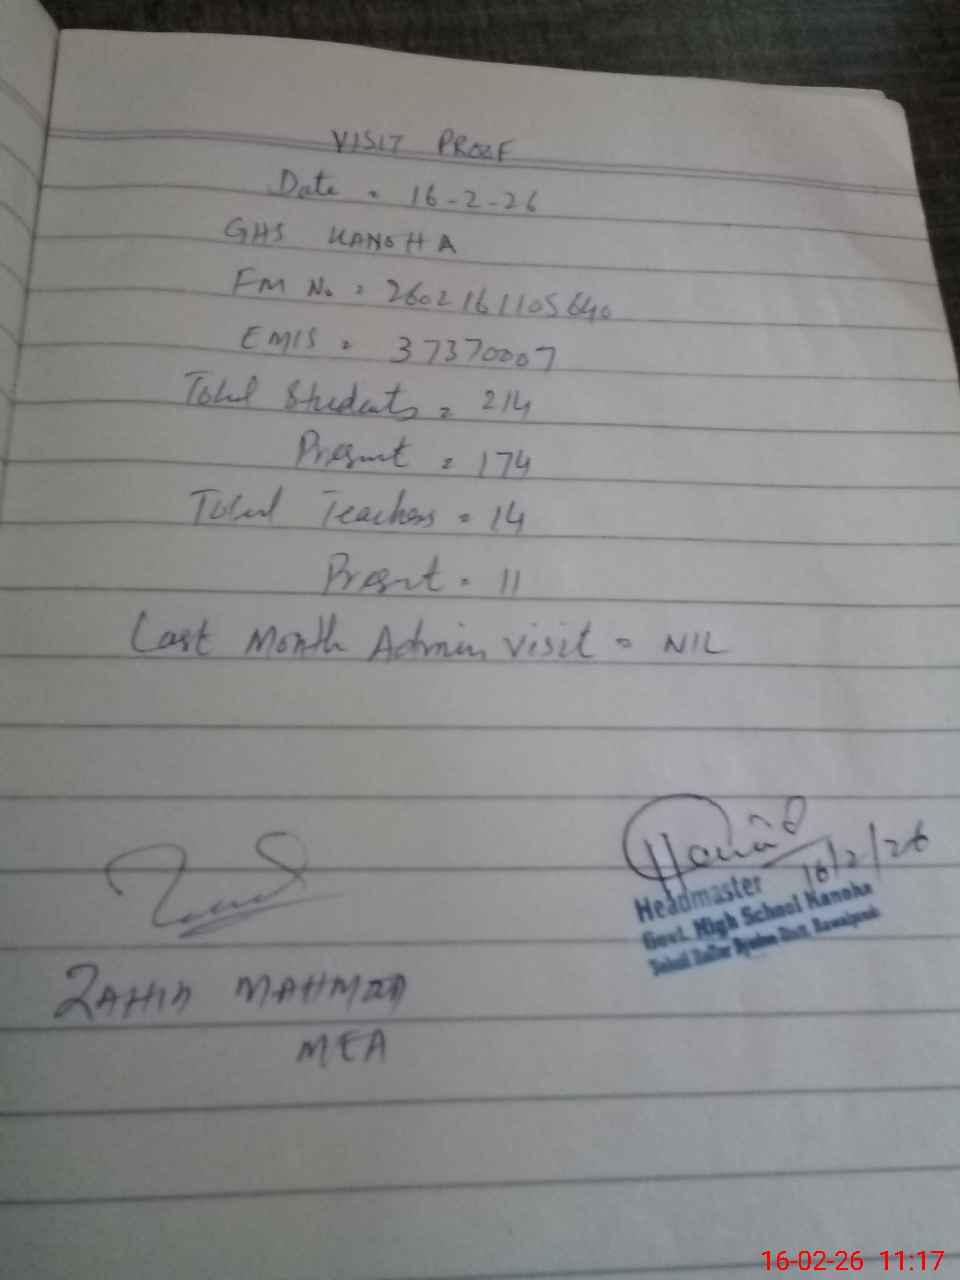 VISIT PROOF
Date = 16-2-26
GHS KANOHA
FM No = 2602161105640
EMIS = 37370007
Total Students = 214
Present = 174
Total Teachers = 14
Present = 11
Last Month Admin visit = NIL
16/2/26
Headmaster
Govt. High School Kanoha
ZAHID MAHMOOD
MEA
16-02-26 11:17